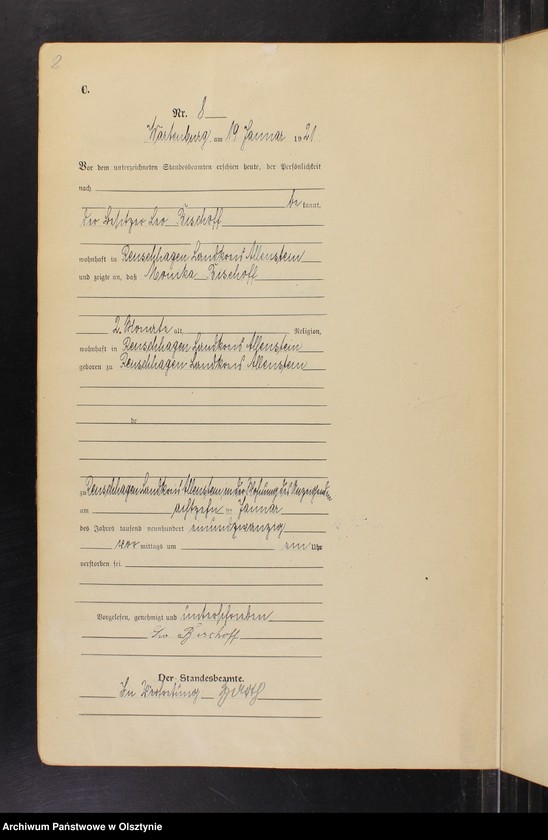 2
C.
Nr. 8
Wartenburg am 19 Januar 1921
Vor dem unterzeichneten Standesbeamten erschien heute, der Persönlichkeit
nach
be kannt,
der Besitzer Leo Bischoff
wohnhaft in Landkreis Allenstein
und zeigte an, daß Monika Bischoff
2 Monate alt, Religion,
wohnhaft in Landkreis Allenstein
geboren zu Landkreis Allenstein
de
zu Landkreis Allenstein, in der Wohnung des Anzeigenden
am achtzehn ten Januar
des Jahres tausend neunhundert einundzwanzig
vor mittags um ein Uhr
verstorben sei.
Vorgelesen, genehmigt und unterschrieben
Leo Bischoff
Der Standesbeamte.
In Vertretung
Archiwum Państwowe w Olsztynie